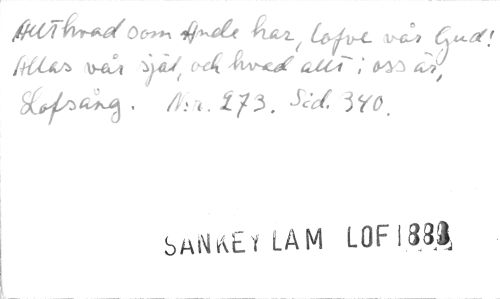 Allt hvad som Ande har, lofve vår Gud!
Allas vår själ, och hvad allt i oss är,
Lofsång. N:r. 273. Sid. 340.
SANKEY LAM LOF 1883